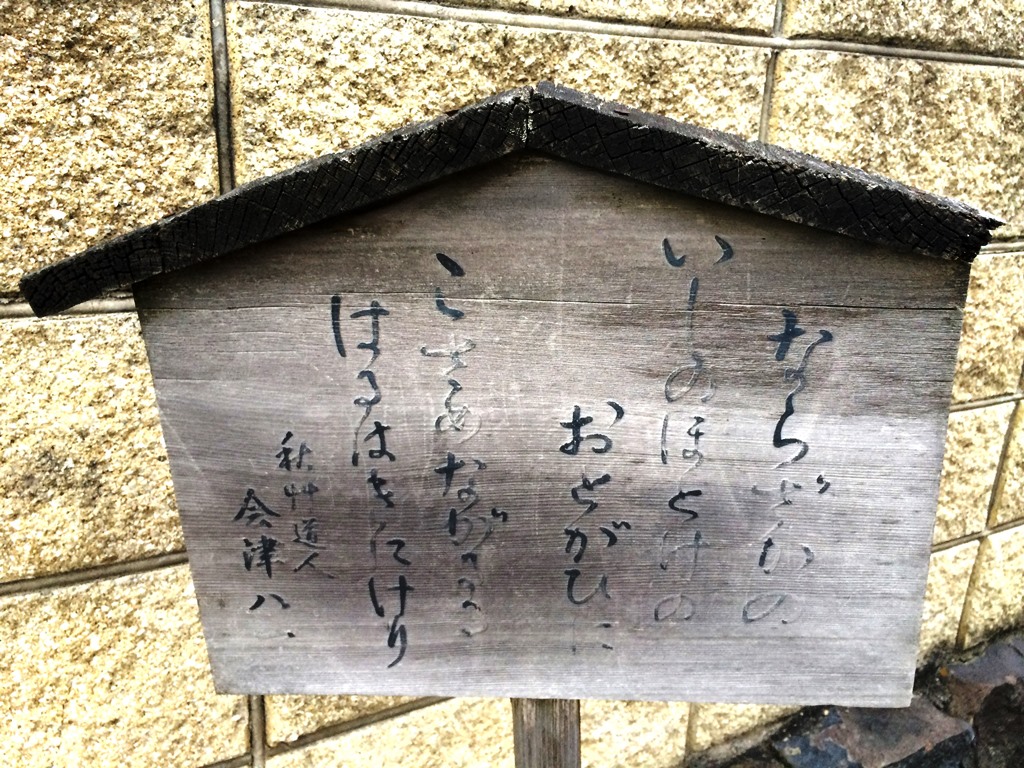 ならざかの
いしのほとけの
おとがひに
こさめながるる
はるはきにけり
秋艸道人
会津八一